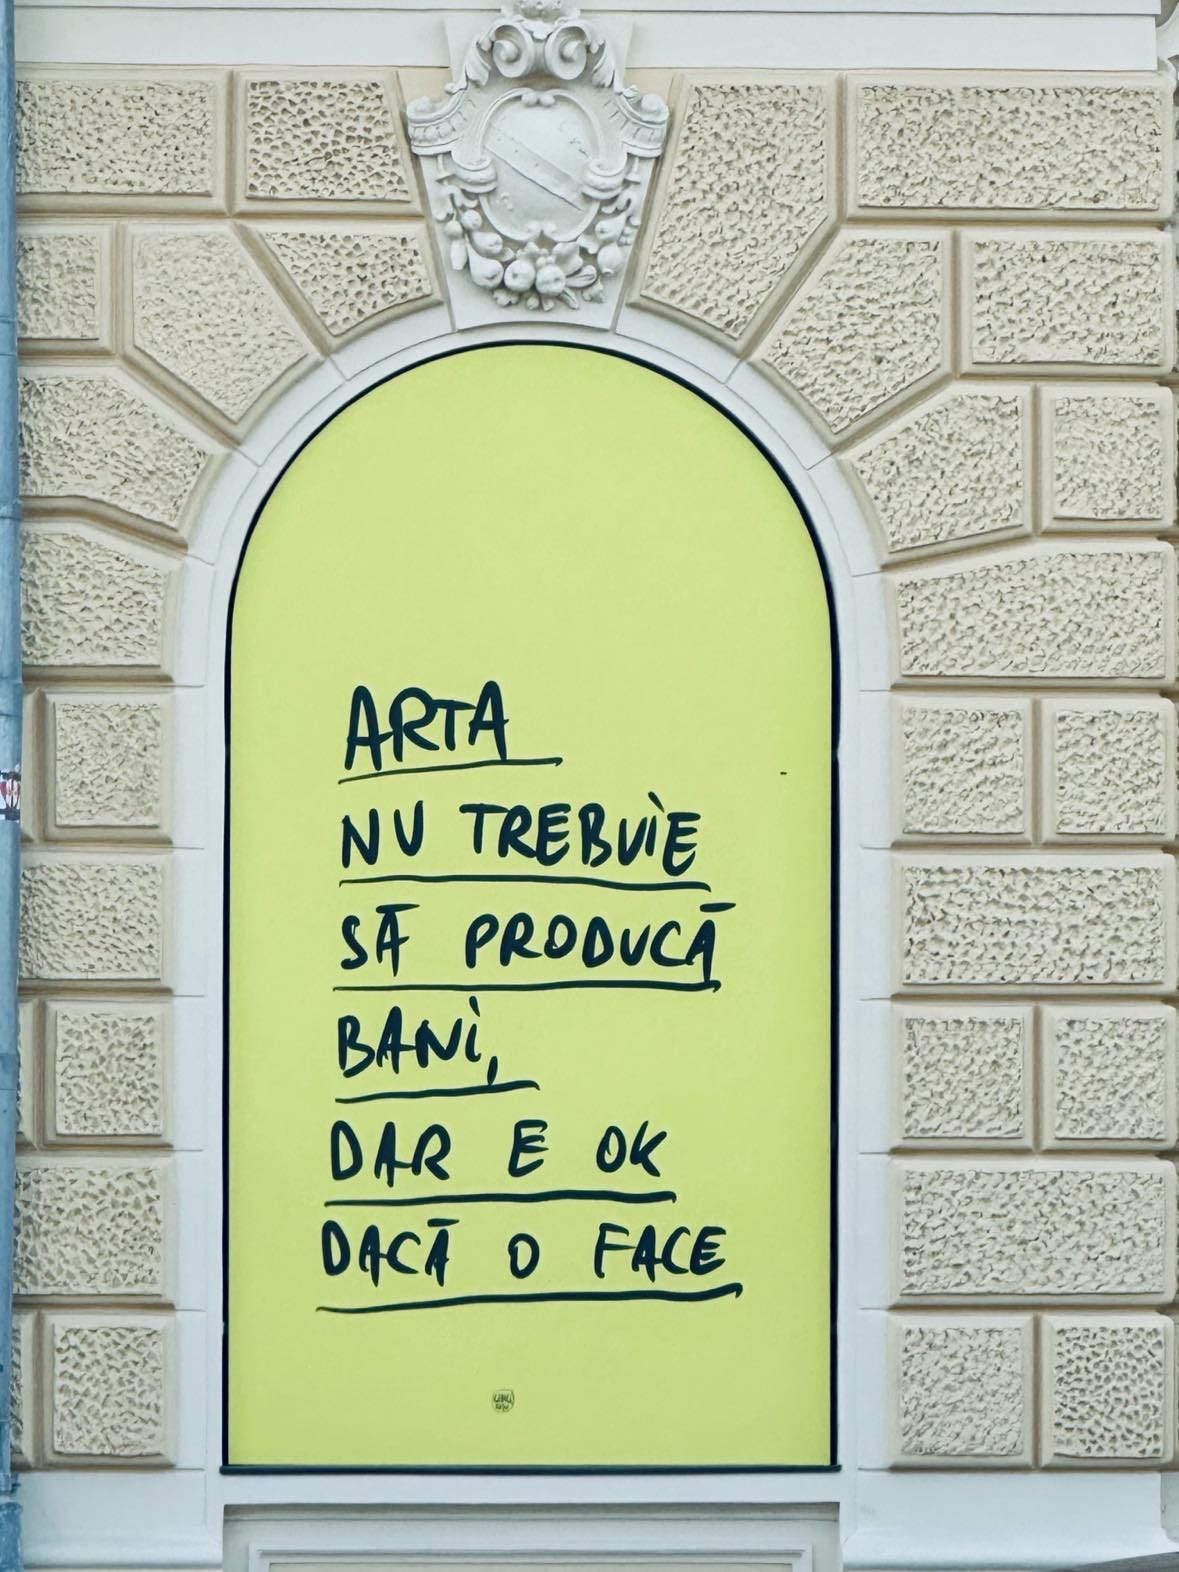 ARTA
NU TREBUIE
SĂ PRODUCĂ
BANI,
DAR E OK
DACĂ O FACE